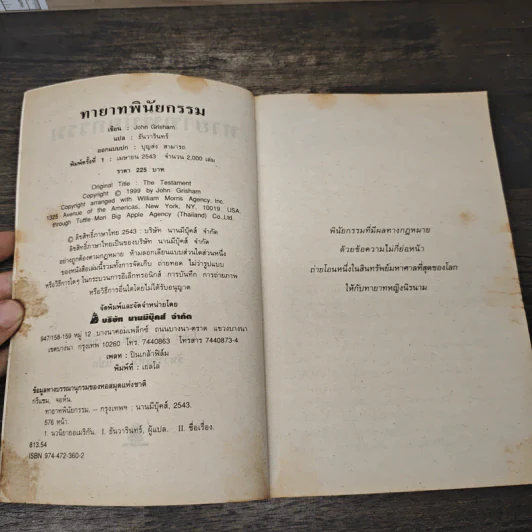 ทายาทพินัยกรรม
เขียน : John Grisham
แปล : ธันวารินทร์
ออกแบบปก : บุญส่ง สามารถ
พิมพ์ครั้งที่ 1 : เมษายน 2543 จำนวน 2,000 เล่ม
ราคา 225 บาท
Original Title : The Testament
Copyright © 1999 by John Grisham
Copyright arranged with William Morris Agency, Inc.
1325 Avenue of the Americas, New York, NY. 10019 USA.
through Tuttle Mori Big Apple Agency (Thailand) Co., Ltd.
© ลิขสิทธิ์ภาษาไทย 2543 : บริษัท นานมีบุ๊คส์ จำกัด
ลิขสิทธิ์ภาษาไทยเป็นของบริษัท นานมีบุ๊คส์ จำกัด
อย่างถูกต้องตามกฎหมาย ห้ามลอกเลียนแบบส่วนใดส่วนหนึ่ง
ของหนังสือเล่มนี้รวมทั้งการจัดเก็บ ถ่ายทอด ไม่ว่ารูปแบบ
หรือวิธีการใดๆ ในกระบวนการอิเล็กทรอนิกส์ การบันทึก การถ่ายภาพ
หรือวิธีการอื่นใดโดยไม่ได้รับอนุญาต
จัดพิมพ์และจัดจำหน่ายโดย
บริษัท นานมีบุ๊คส์ จำกัด
947/158-159 หมู่ 12 บางนาคอมเพล็กซ์ ถนนบางนา-ตราด แขวงบางนา
เขตบางนา กรุงเทพ 10260 โทร. 7440863 โทรสาร 7440873-4
เพลท : ปิ่นเกล้าฟิล์ม
พิมพ์ที่ : เยลโล่
ข้อมูลทางบรรณานุกรมของหอสมุดแห่งชาติ
กริแชม, จอห์น.
ทายาทพินัยกรรม. -- กรุงเทพฯ : นานมีบุ๊คส์, 2543.
576 หน้า.
1. นวนิยายอเมริกัน. I. ธันวารินทร์, ผู้แปล. II. ชื่อเรื่อง.
813.54
ISBN 974-472-360-2
พินัยกรรมที่มีผลทางกฎหมาย
ด้วยข้อความไม่กี่ย่อหน้า
ถ่ายโอนหนึ่งในสินทรัพย์มหาศาลที่สุดของโลก
ให้กับทายาทหญิงนิรนาม